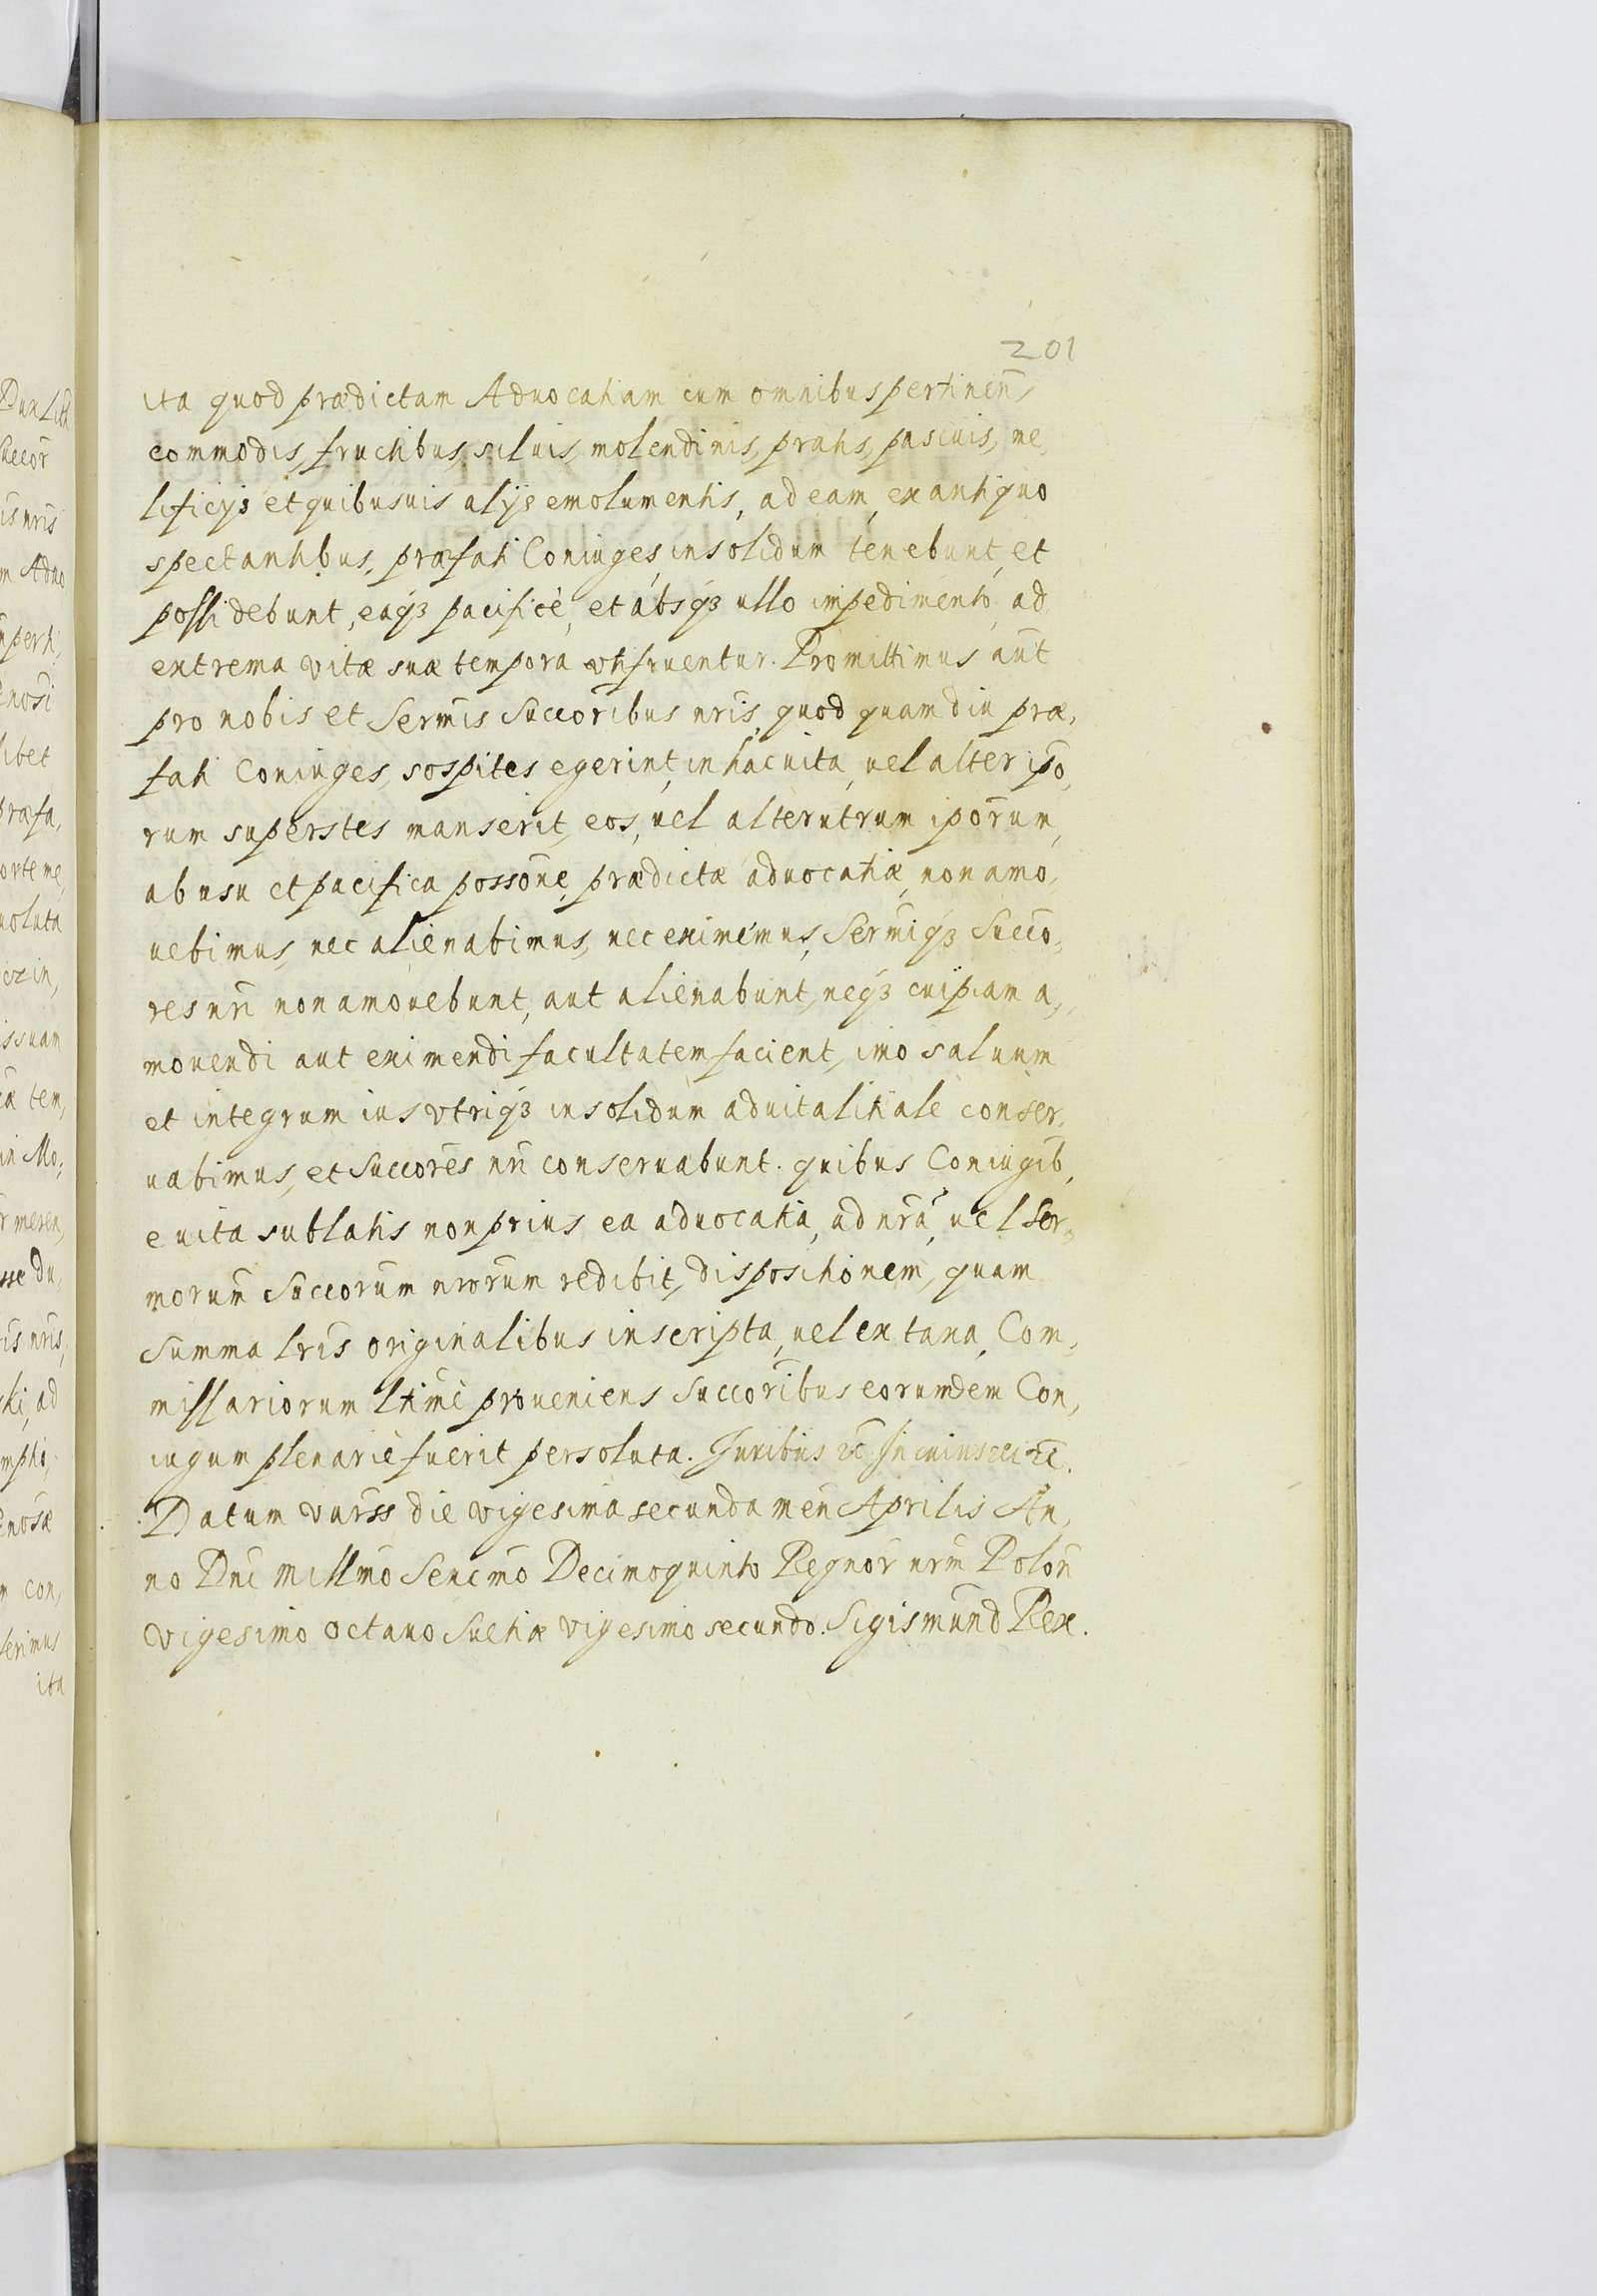 201
ita quod prædictam Aduocatiam cum omnibus pertinen̄,
commodis, fructibus, siluis, molendinis, pratis, pascuis, me,
lificijs et quibusuis alijs emolumentis, ad eam, ex antiquo
spectantibus, præfati Coniuges, in solidum tenebunt, et
possidebunt, eaqȝ pacificè, et absqȝ ullo impedimento, ad
extrema vitæ suæ tempora vtifruentur. Promittimus aūt
pro nobis et Serm̄is Succōribus nr̄is, quod quamdiu præ,
fati Coniuges, sospites egerint, in hac uita, uel alter ip̄o,
rum superstes manserit, eos, uel alterutrum ip̄orum,
ab usu et pacifica possōne, prædictæ aduocatiæ, non amo,
uebimus, nec alienabimus, nec eximemus, Serm̄iqȝ Succō,
res nr̄i non amouebunt, aut alienabunt, neqȝ cuipiam a,
mouendi aut eximendi facultatem facient, imo saluum
et integrum ius vtriqȝ in solidum aduitalitiale conser,
uabimus, et Succōres nr̄i conseruabunt. quibus Coniugib,
e uita sublatis non prius ea aduocatia, ad nr̄ā, uel Ser,
morum̄ Succorum nrorum redibit, dispositionem, quam
summa lr̄is originalibus inscripta, uel ex taxa, Com,
missariorum ltimè proueniens Succoribus eorumdem Con,
iugum plenariè fuerit persoluta. Iuribus ꝛc̄ In cuius rei ꝛc̄.
Datum Varss die vigesima secunda men̄ Aprilis An,
no Dn̄i Millm̄o Sexcm̄o Decimoquinto Regnor̄ nrm̄ Polon̄
vigesimo octauo Suetiæ vigesimo secundo. Sigismund Rex.